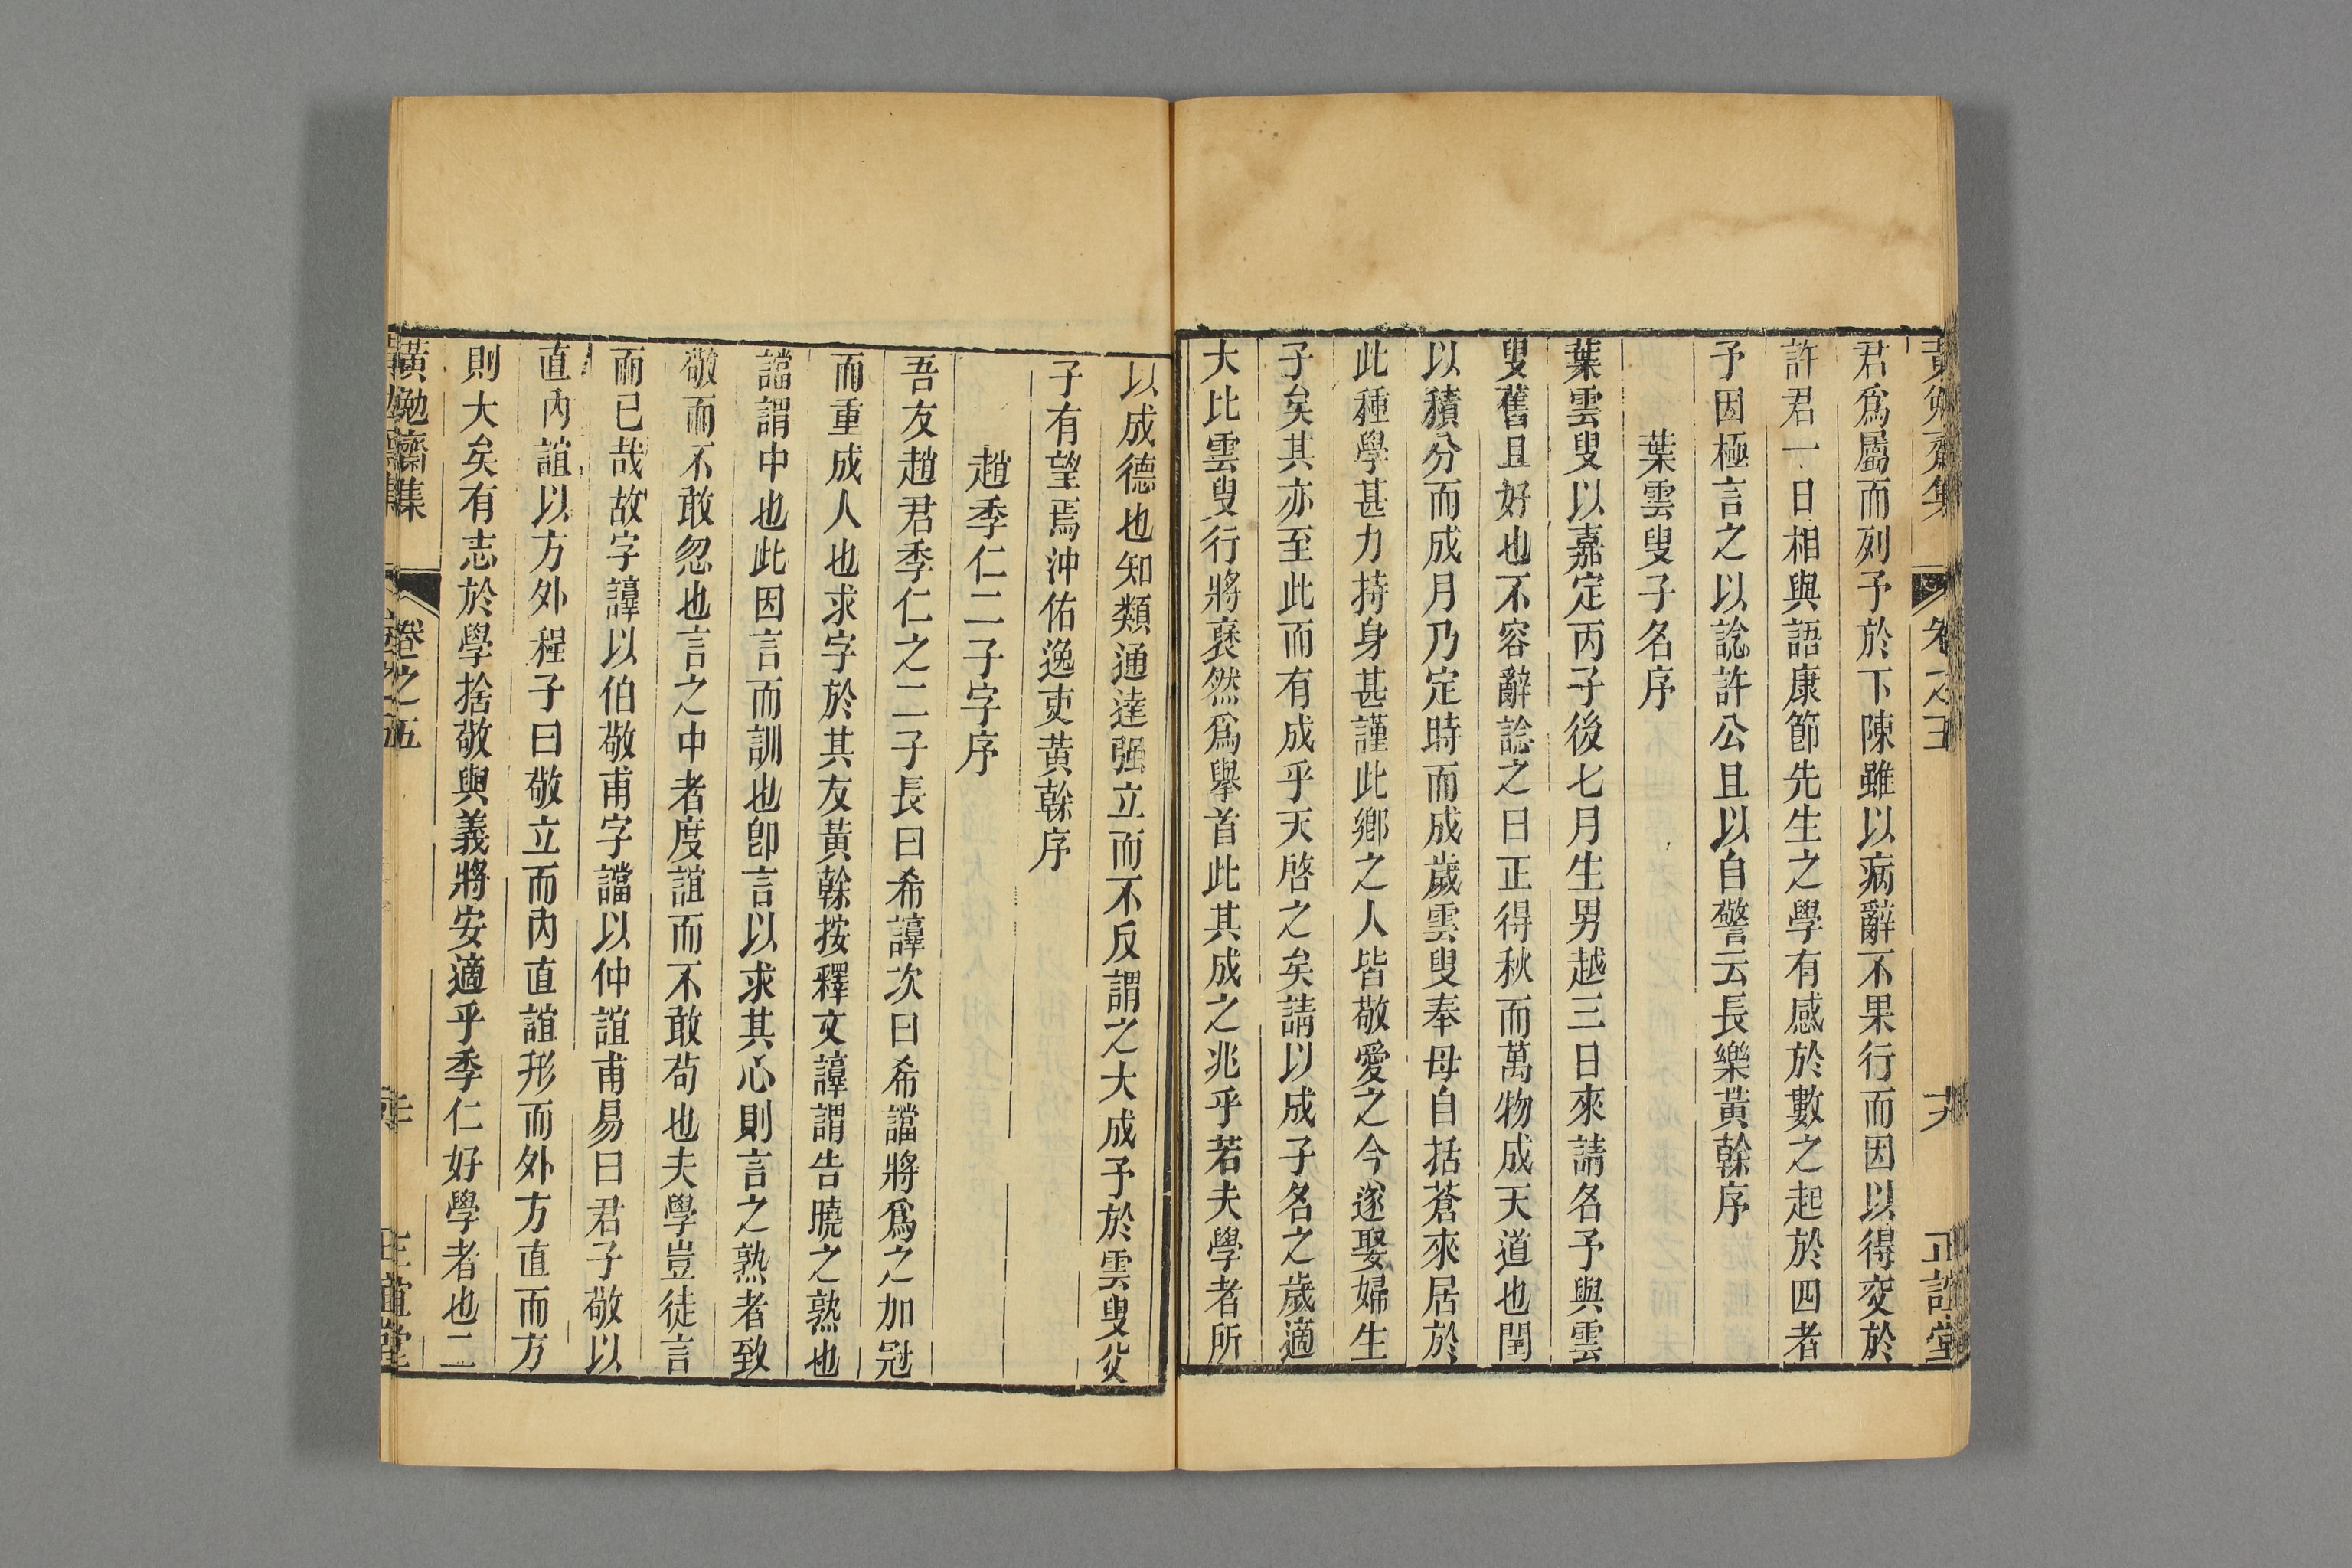 黃勉齋集 卷之五 六 正誼堂
君爲屬而列予於下陳雖以病辭不果行而因以得交於
許君一日相與語康節先生之學有感於數之起於四者
予因極言之以諗許公且以自警云長樂黃榦序
葉雲叟子名序
葉雲叟以嘉定丙子後七月生男越三日來請名予與雲
叟舊且好也不容辭諗之曰正得秋而萬物成天道也閏
以積分而成月乃定時而成歲雲叟奉母自括蒼來居於
此種學甚力持身甚謹此鄉之人皆敬愛之今遂娶婦生
子矣其亦至此而有成乎天啓之矣請以成子名之歲適
大比雲叟行將裒然爲舉首此其成之兆乎若夫學者所
以成德也知類通達强立而不反謂之大成予於雲叟父
子有望焉沖佑逸吏黃榦序
趙季仁二子字序
吾友趙君季仁之二子長曰希䛫次曰希譡將爲之加冠
而重成人也求字於其友黃榦按釋文䛫謂告曉之熟也
譡謂中也此因言而訓也卽言以求其心則言之熟者致
敬而不敢忽也言之中者度誼而不敢苟也夫學豈徒言
而已哉故字䛫以伯敬甫字譡以仲誼甫易曰君子敬以
直內誼以方外程子曰敬立而內直誼形而外方直而方
則大矣有志於學捨敬與義將安適乎季仁好學者也二
黃勉齋集 卷之五 正誼堂